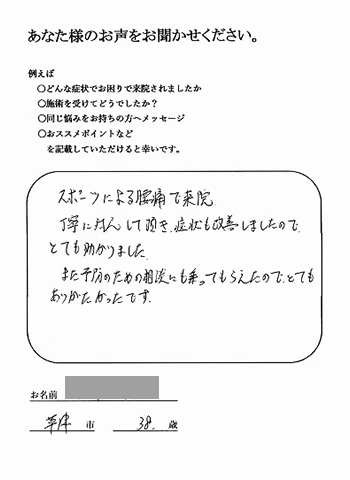 あなた様のお声をお聞かせください。
例えば
〇どんな症状でお困りで来院されましたか
〇施術を受けてどうでしたか？
〇同じ悩みをお持ちの方へメッセージ
〇おススメポイントなど
を記載していただけると幸いです。
スポーツによる腰痛で来院
丁寧に対応して頂き、症状も改善しましたので、
とても助かりました
また予防のための相談にも乗ってもらえたので、とても
ありがたかったです。
お名前
草津 市 38. 歳